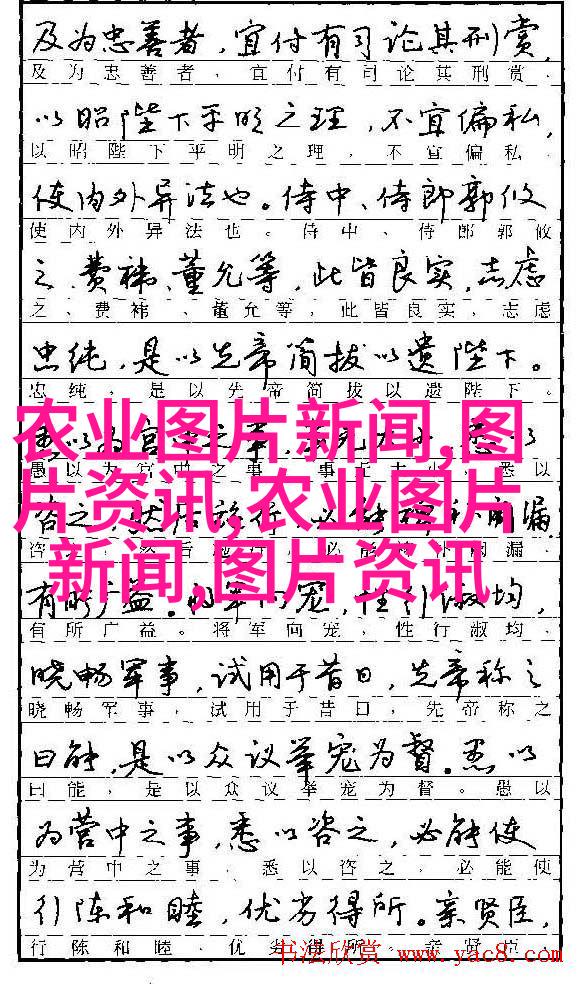 及为忠善者，宜付有司论其刑赏，
及为忠善者，宜付有司论其刑赏，
以昭陛下平明之理，不宜偏私，
以昭陛下平明之理，不宜偏私，
使内外异法也。侍中、侍郎郭攸
使内外异法也。侍中、侍郎郭攸
之、费袆、董允等，此皆良实，志虑
之、费袆、董允等，此皆良实，志虑
忠纯，是以先帝简拔以遗陛下。
忠纯，是以先帝简拔以遗陛下。
农业图片新闻,图
片资讯,农业图片
新闻,图片资讯
愚以为宫中之事，悉以
愚以为宫中之事，事无大小，悉以
咨之，漏
咨之，然后施行，必能 补阙漏，
有所广益。将军向宠，性行淑均，
有所广益。将军向宠，性行淑均，
晓畅军事，试用于昔日，先帝称之
晓畅军事，试用于昔日，先帝称之
曰能，是以众议举宠为督。愚以
曰能，是以众议举宠为督。愚以
为营中之事，悉以咨之，必能使
为营中之事，悉以咨之，必能使
行陈和睦，优劣得所。亲贤臣，
行陈和睦，优劣得所。亲贤臣，
书法欣赏 www.yac8.com